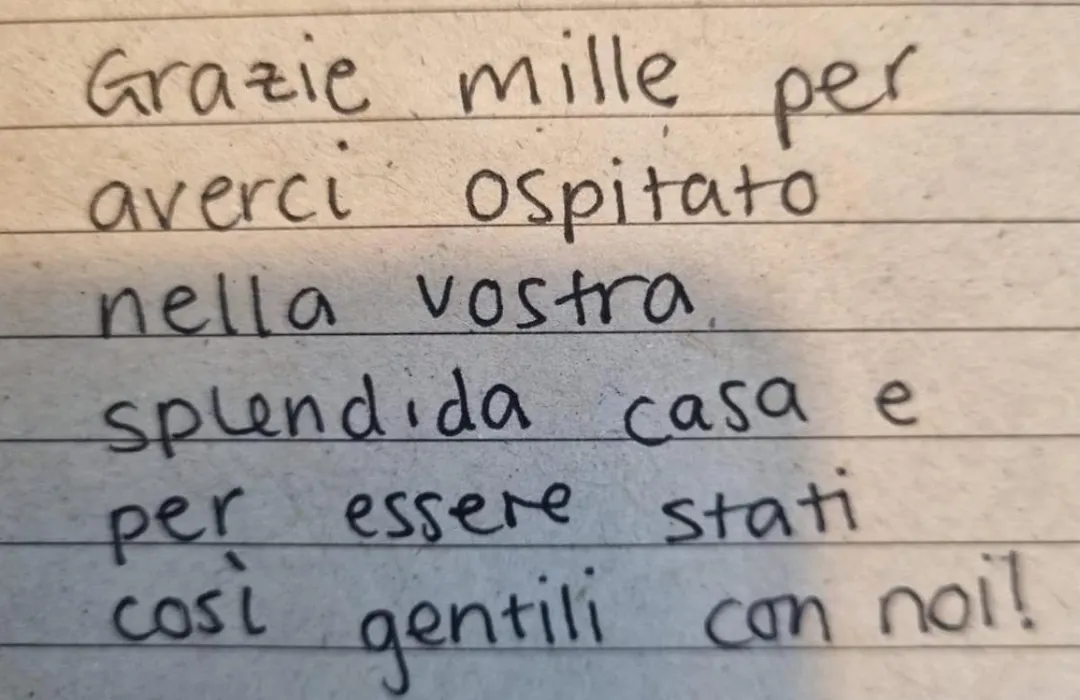 Grazie mille per
averci ospitato
nella vostra
splendida casa e
per essere stati
così gentili con noi!